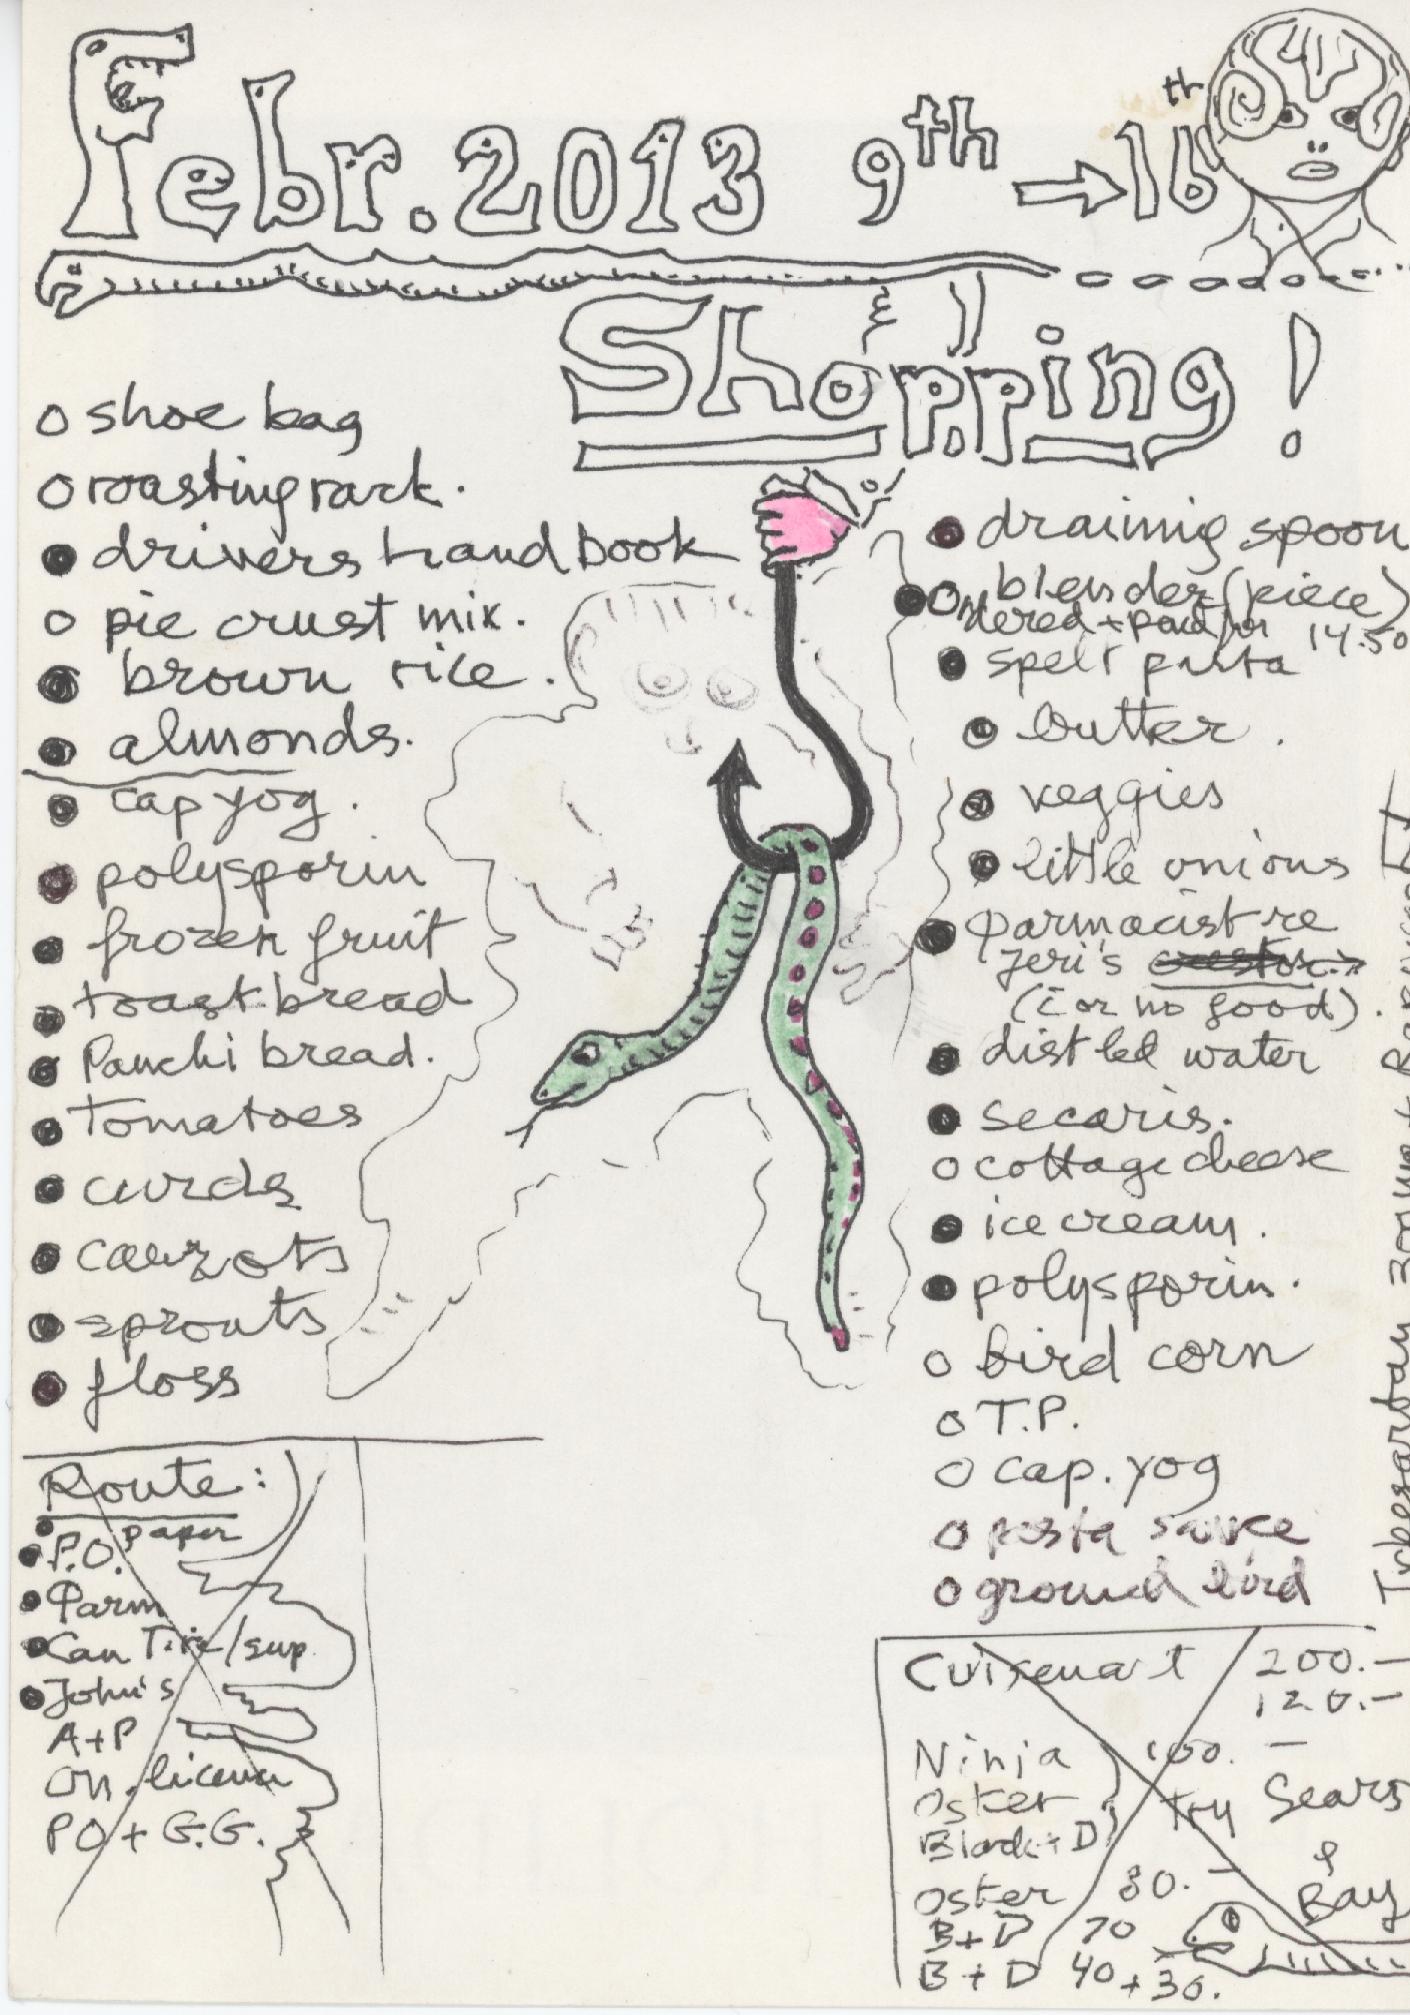 Febr. 2013 9th → 16th
Shopping!
o shoe bag
o roasting rack.
● drivers handbook
o pie crust mix.
● brown rice.
● almonds.
● cap yog.
● polysporin
● frozen fruit
● toast bread
● Panchi bread.
● Tomatoes
● curds
● carrots
● sprouts
● floss
Route:
● paper
● P.O.
● Parm
● Can Tire/sup.
● John's
A+P
On. licence
PO + G.G.
● draining spoon
● o blender (piece)
Ordered + paid for 14.50
● spelt pasta
● butter.
● veggies
● little onions
● Parmacist re
Jeri's
(i or no good).
● distled water
● secaris.
o cottage cheese
● ice cream.
● polysporin.
o bird corn
o T.P.
o cap. yog
o pasta sauce
o ground bird
Irbesartan 300mg +
Cuisenart 200.—
120.—
Ninja 100.—
Osker
Black + D
try Sears
& Bay
Oster 80.—
B+D 70
B+D 40+30.